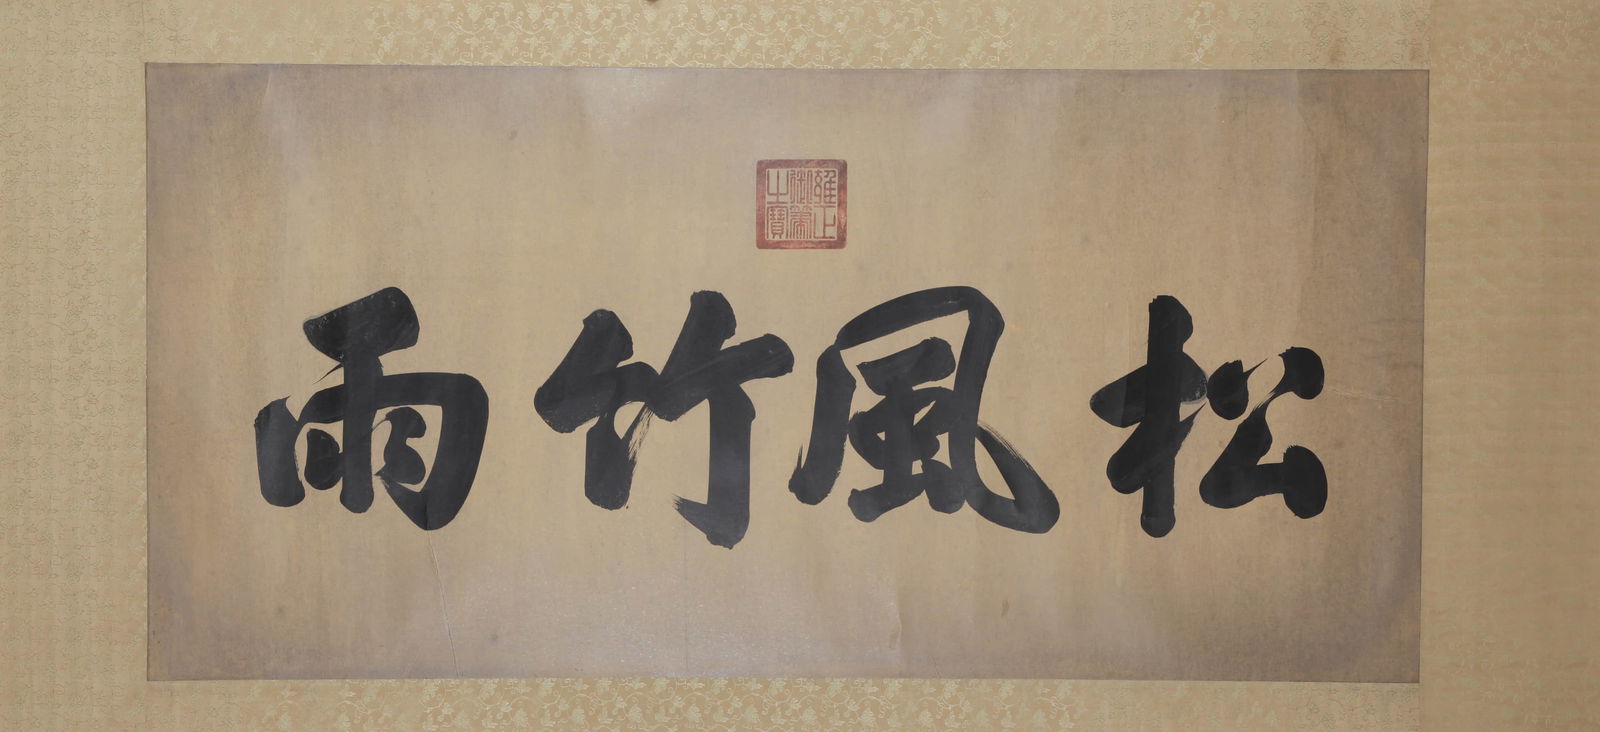 松風竹雨
雍正御筆之寶